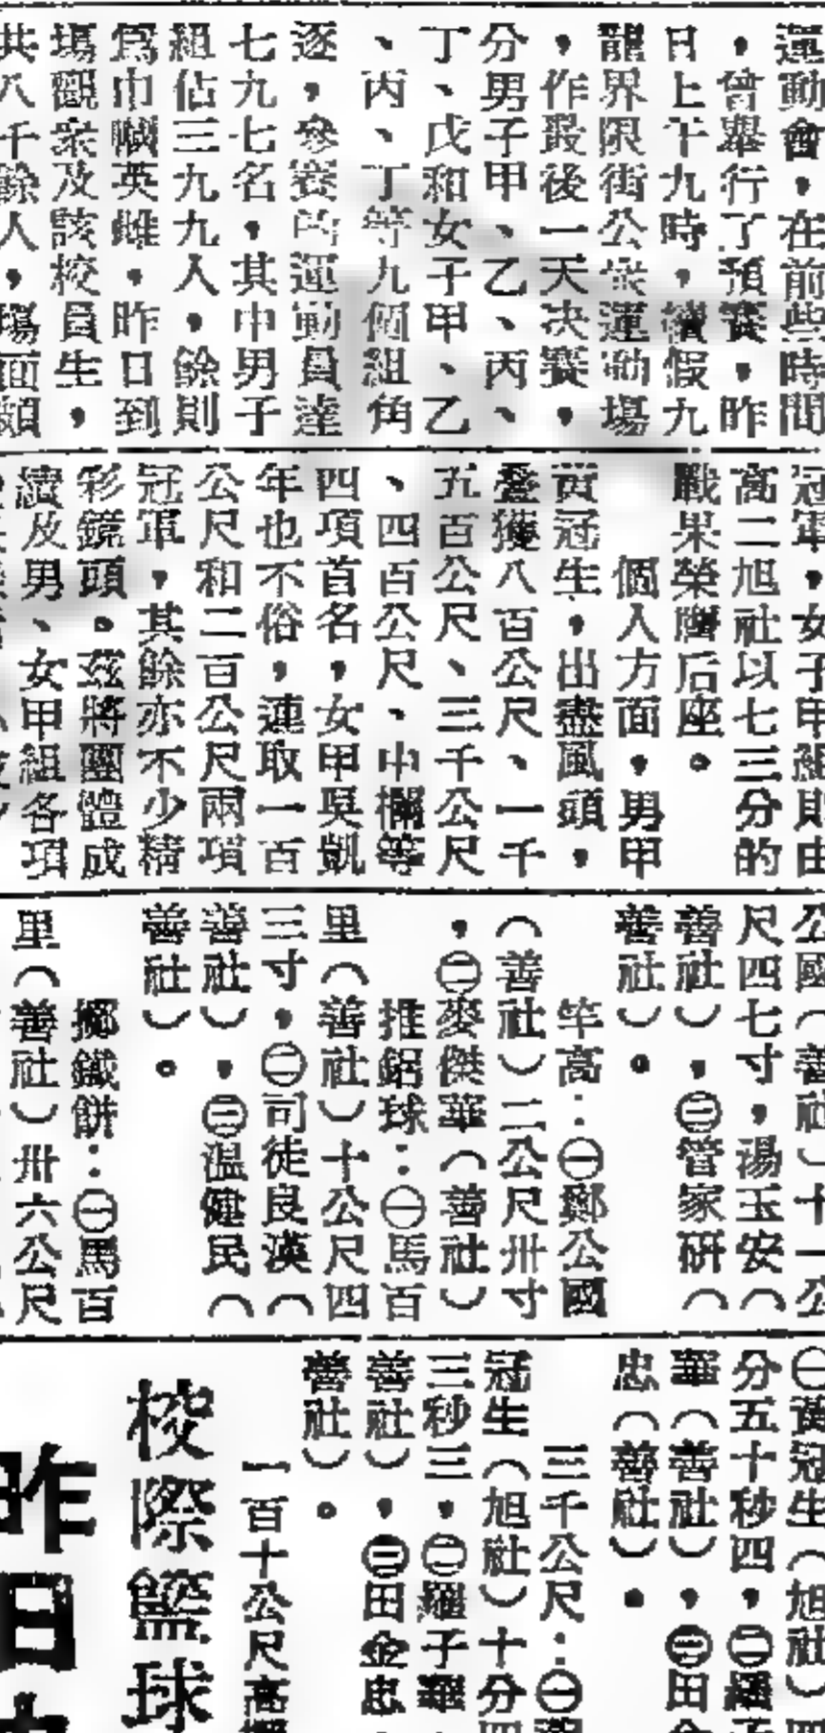 運動會，在前些時間
，曾舉行了預賽，昨
日上午九時，續假九
龍界限街公衆運動場
，作最後一天決賽，
分男子甲、乙、丙、
丁、戊和女子甲、乙
、丙、丁等九個組角
逐，參賽的運動員達
七九七名，其中男子
組佔三九九人，餘則
爲巾幗英雌，昨日到
塲觀衆及該校員生，
共八千餘人，塲面頗
冠軍，女子甲組則由
高二旭社以七三分的
戰果榮膺后座。
個人方面，男甲
黃冠生，出盡風頭，
疊獲八百公尺、一千
五百公尺、三千公尺
、四百公尺、中欄等
四項首名，女甲吳凱
年也不俗，連取一百
公尺和二百公尺兩項
冠軍，其餘亦不少精
彩鏡頭。茲將團體成
續及男、女甲組各項
公國（善社）十一公
尺四七寸，湯玉安（
善社），㊂管家硏（
善社）。
竿高：㊀鄭公國
（善社）二公尺卅寸
，㊁麥傑華（善社）
推鉛球：㊀馬百
里（善社）十公尺四
三寸，㊁司徒良漢（
善社），㊂温健民（
善社）。
擲鐵餅：㊀馬百
里（善社）卅六公尺
㊀黃冠生（旭社）四
分五十秒四，㊁羅子
華（善社），㊂田金
忠（善社）。
三千公尺：㊀黃
冠生（旭社）十分四
三秒三，㊁羅子華（
善社），㊂田金忠（
善社）。
一百十公尺高欄
校際籃球
昨日